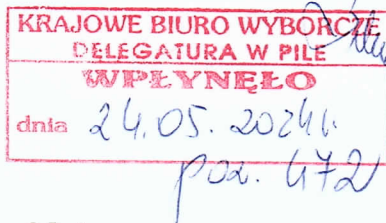 KRAJOWE BIURO WYBORCZE
DELEGATURA W PILE
WPŁYNĘŁO
dnia 24.05.2024r.
poz. 472